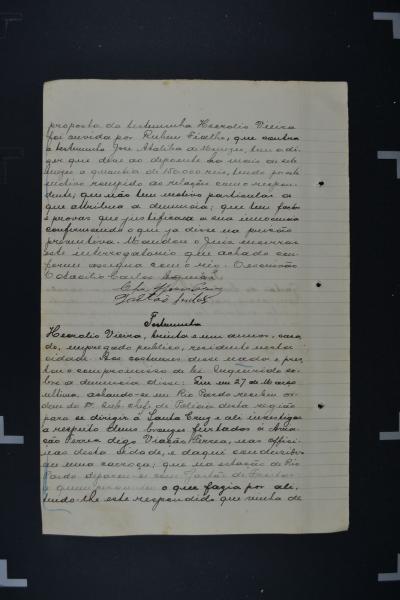 proposta da testemunha Heorolio Vieira
foi ouvida por Ruben Fialho, que contra
a testemunha José Ataliba de Menezes, tem a di
zer que deve ao depoente ha mais de seis
mezes a quantia de 150.000 reis, tendo por este
motivo rompido as relações com o respon
dente; que não tem motivo particular a
que attribua a denuncia; que tem factos
e provas que justificam a sua innocencia
confirmando o que já disse na prisão
preventiva. Mandou o Juiz encerrar
este interrogatorio que achado con
forme assigna com o réo. O escrivão
Testemunha
Heorolio Vieira, trinta e um annos, casa
do, empregado publico, residente nesta
cidade. Aos costumes disse nada e pres
tou o compromisso de lei. Inquirido so
bre a denuncia disse: Em 27 de Março
ultimo, achando-se em Rio Pardo recebeu or
dem do Sr. Sub-chefe de Policia desta região
para se dirigir á Santa Cruz e ali investigar
a respeito duns bronzes furtados á Via
ção Ferrea digo Viação Ferrea, nas offici
nas desta cidade, e daqui conduzidos
em uma carroça; que na estação de Rio
Pardo deparou-se com
a quem perguntou o que fazia por ali,
tendo-lhe este respondido que vinha de